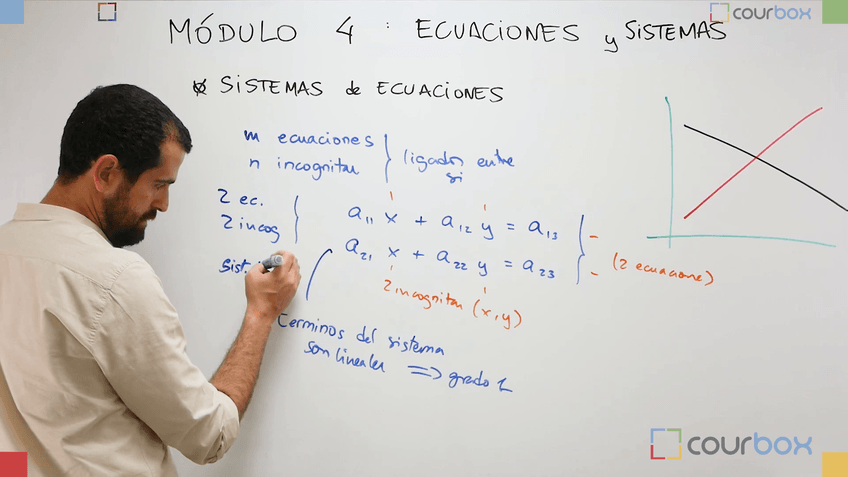 MÓDULO 4 : ECUACIONES y SISTEMAS
courbox
SISTEMAS de ECUACIONES
m ecuaciones
n incognitas
ligados entre
si
2 ec.
2 incog
a11 x + a12 y = a13
a21 x + a22 y = a23
(2 ecuaciones)
2 incognitas (x,y)
Sist.
Terminos del sistema
son lineales => grado 1
courbox